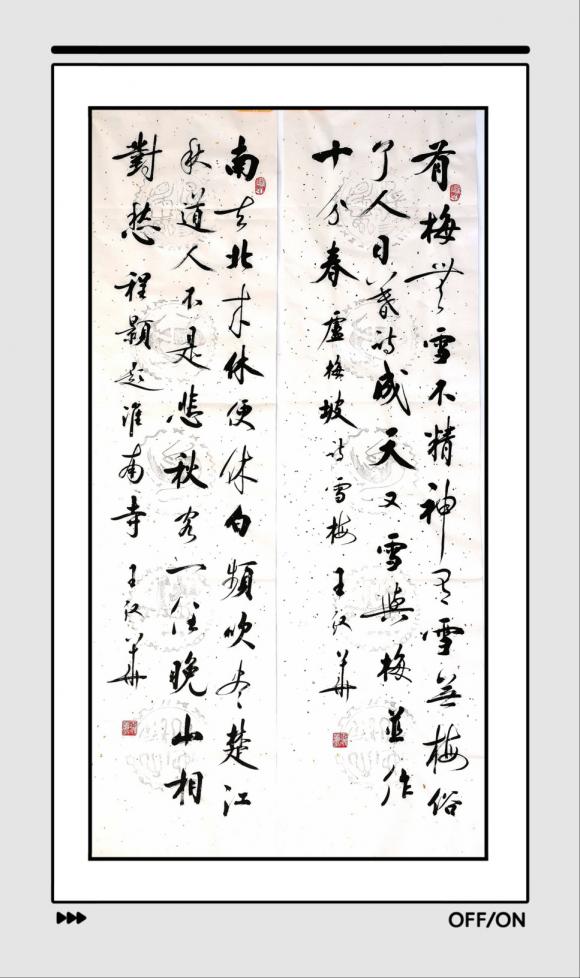 有梅無雪不精神有雪無梅俗
了人日暮詩成天又雪與梅並作
十分春 盧梅坡詩雪梅 王汉華
南去北来休便休白頻吹尽楚江
秋道人不是悲秋客一任晚山相
對愁 程顥題淮南寺 王汉華
OFF/ON